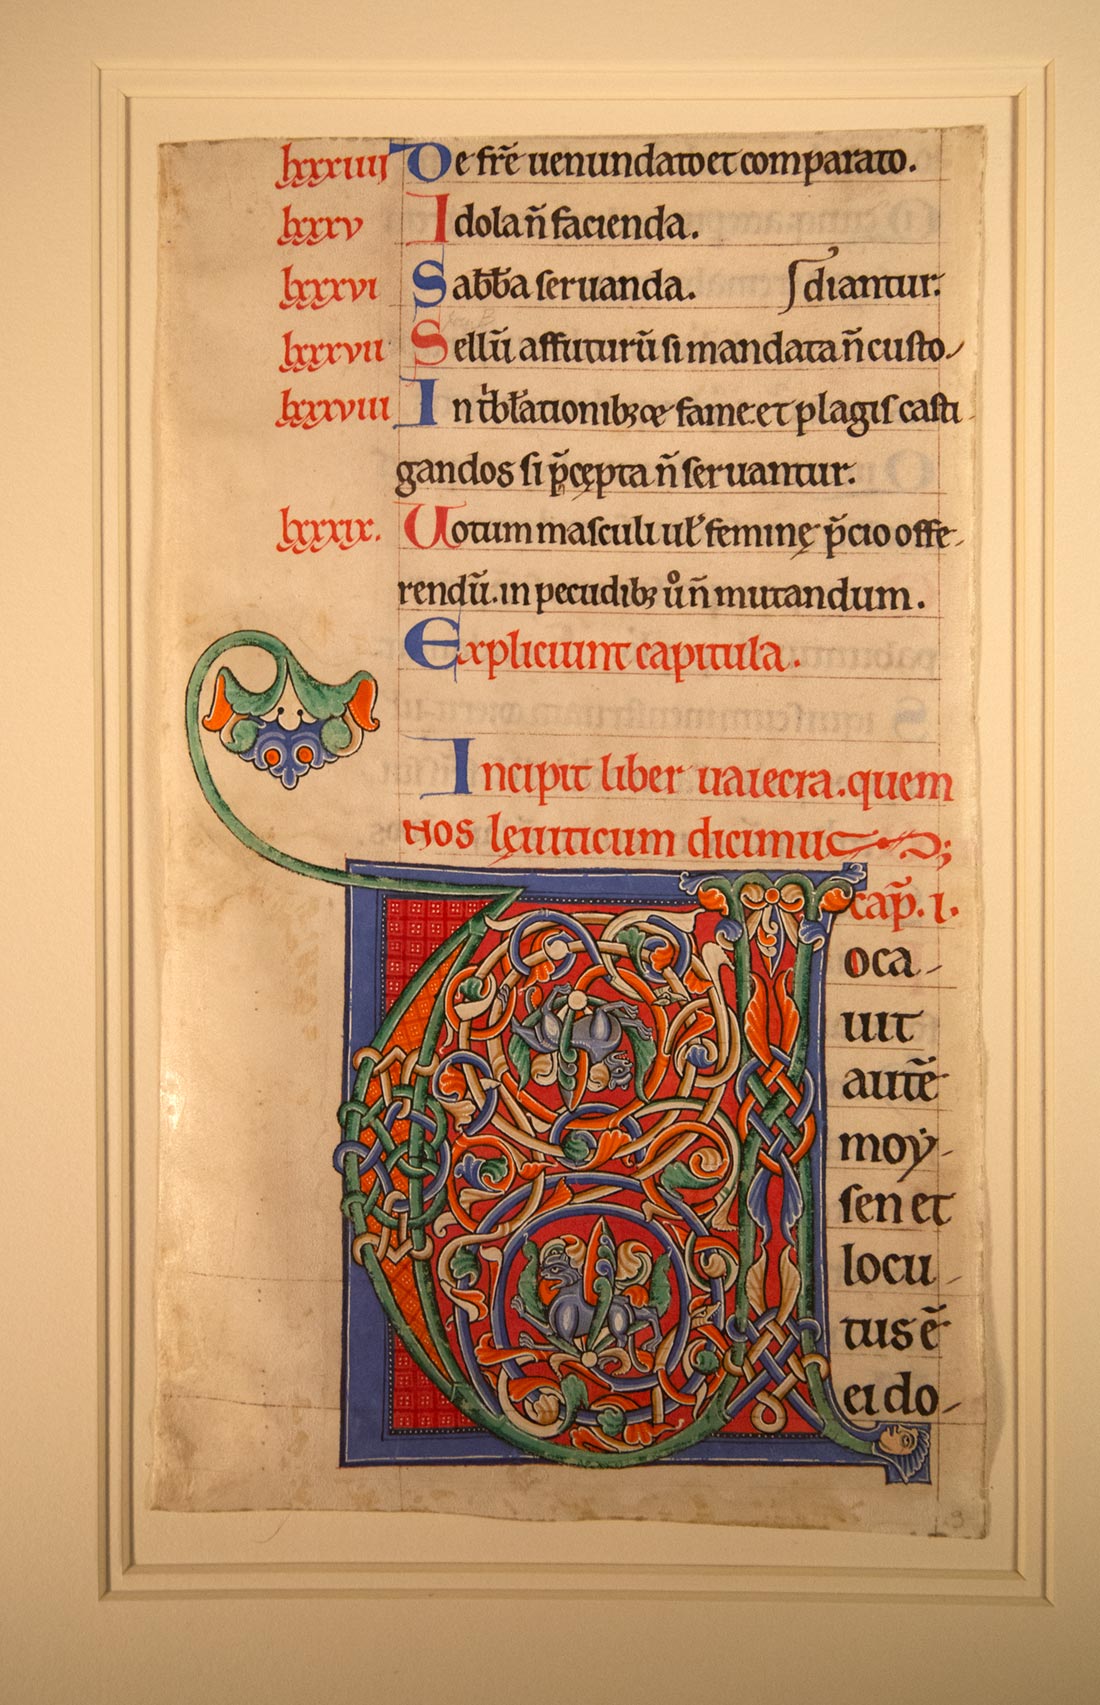 lxxxiiii De fr̄e uenundato et comparato.
lxxxv Idola n̄ facienda.
lxxxvi Sabb̄a seruanda. diantur.
lxxxvii Sellū affuturū si mandata n̄ custo-
lxxxviii In t̓bl̓ationibꝫ ⁊ce fame et plagis casti
gandos si p̄cępta n̄ seruantur.
lxxxix. Uotum masculi ul̓ feminę p̄cio offe-
rendū. in pecudibꝫ ůn̄ mutandum.
Expliciunt capitula.
Incipit liber uaiecra. quem
nos leuiticum dicimus;
cap̄. i.
V
oca-
uit
autē
moẏ-
sen et
locu-
tus ē
ei do-